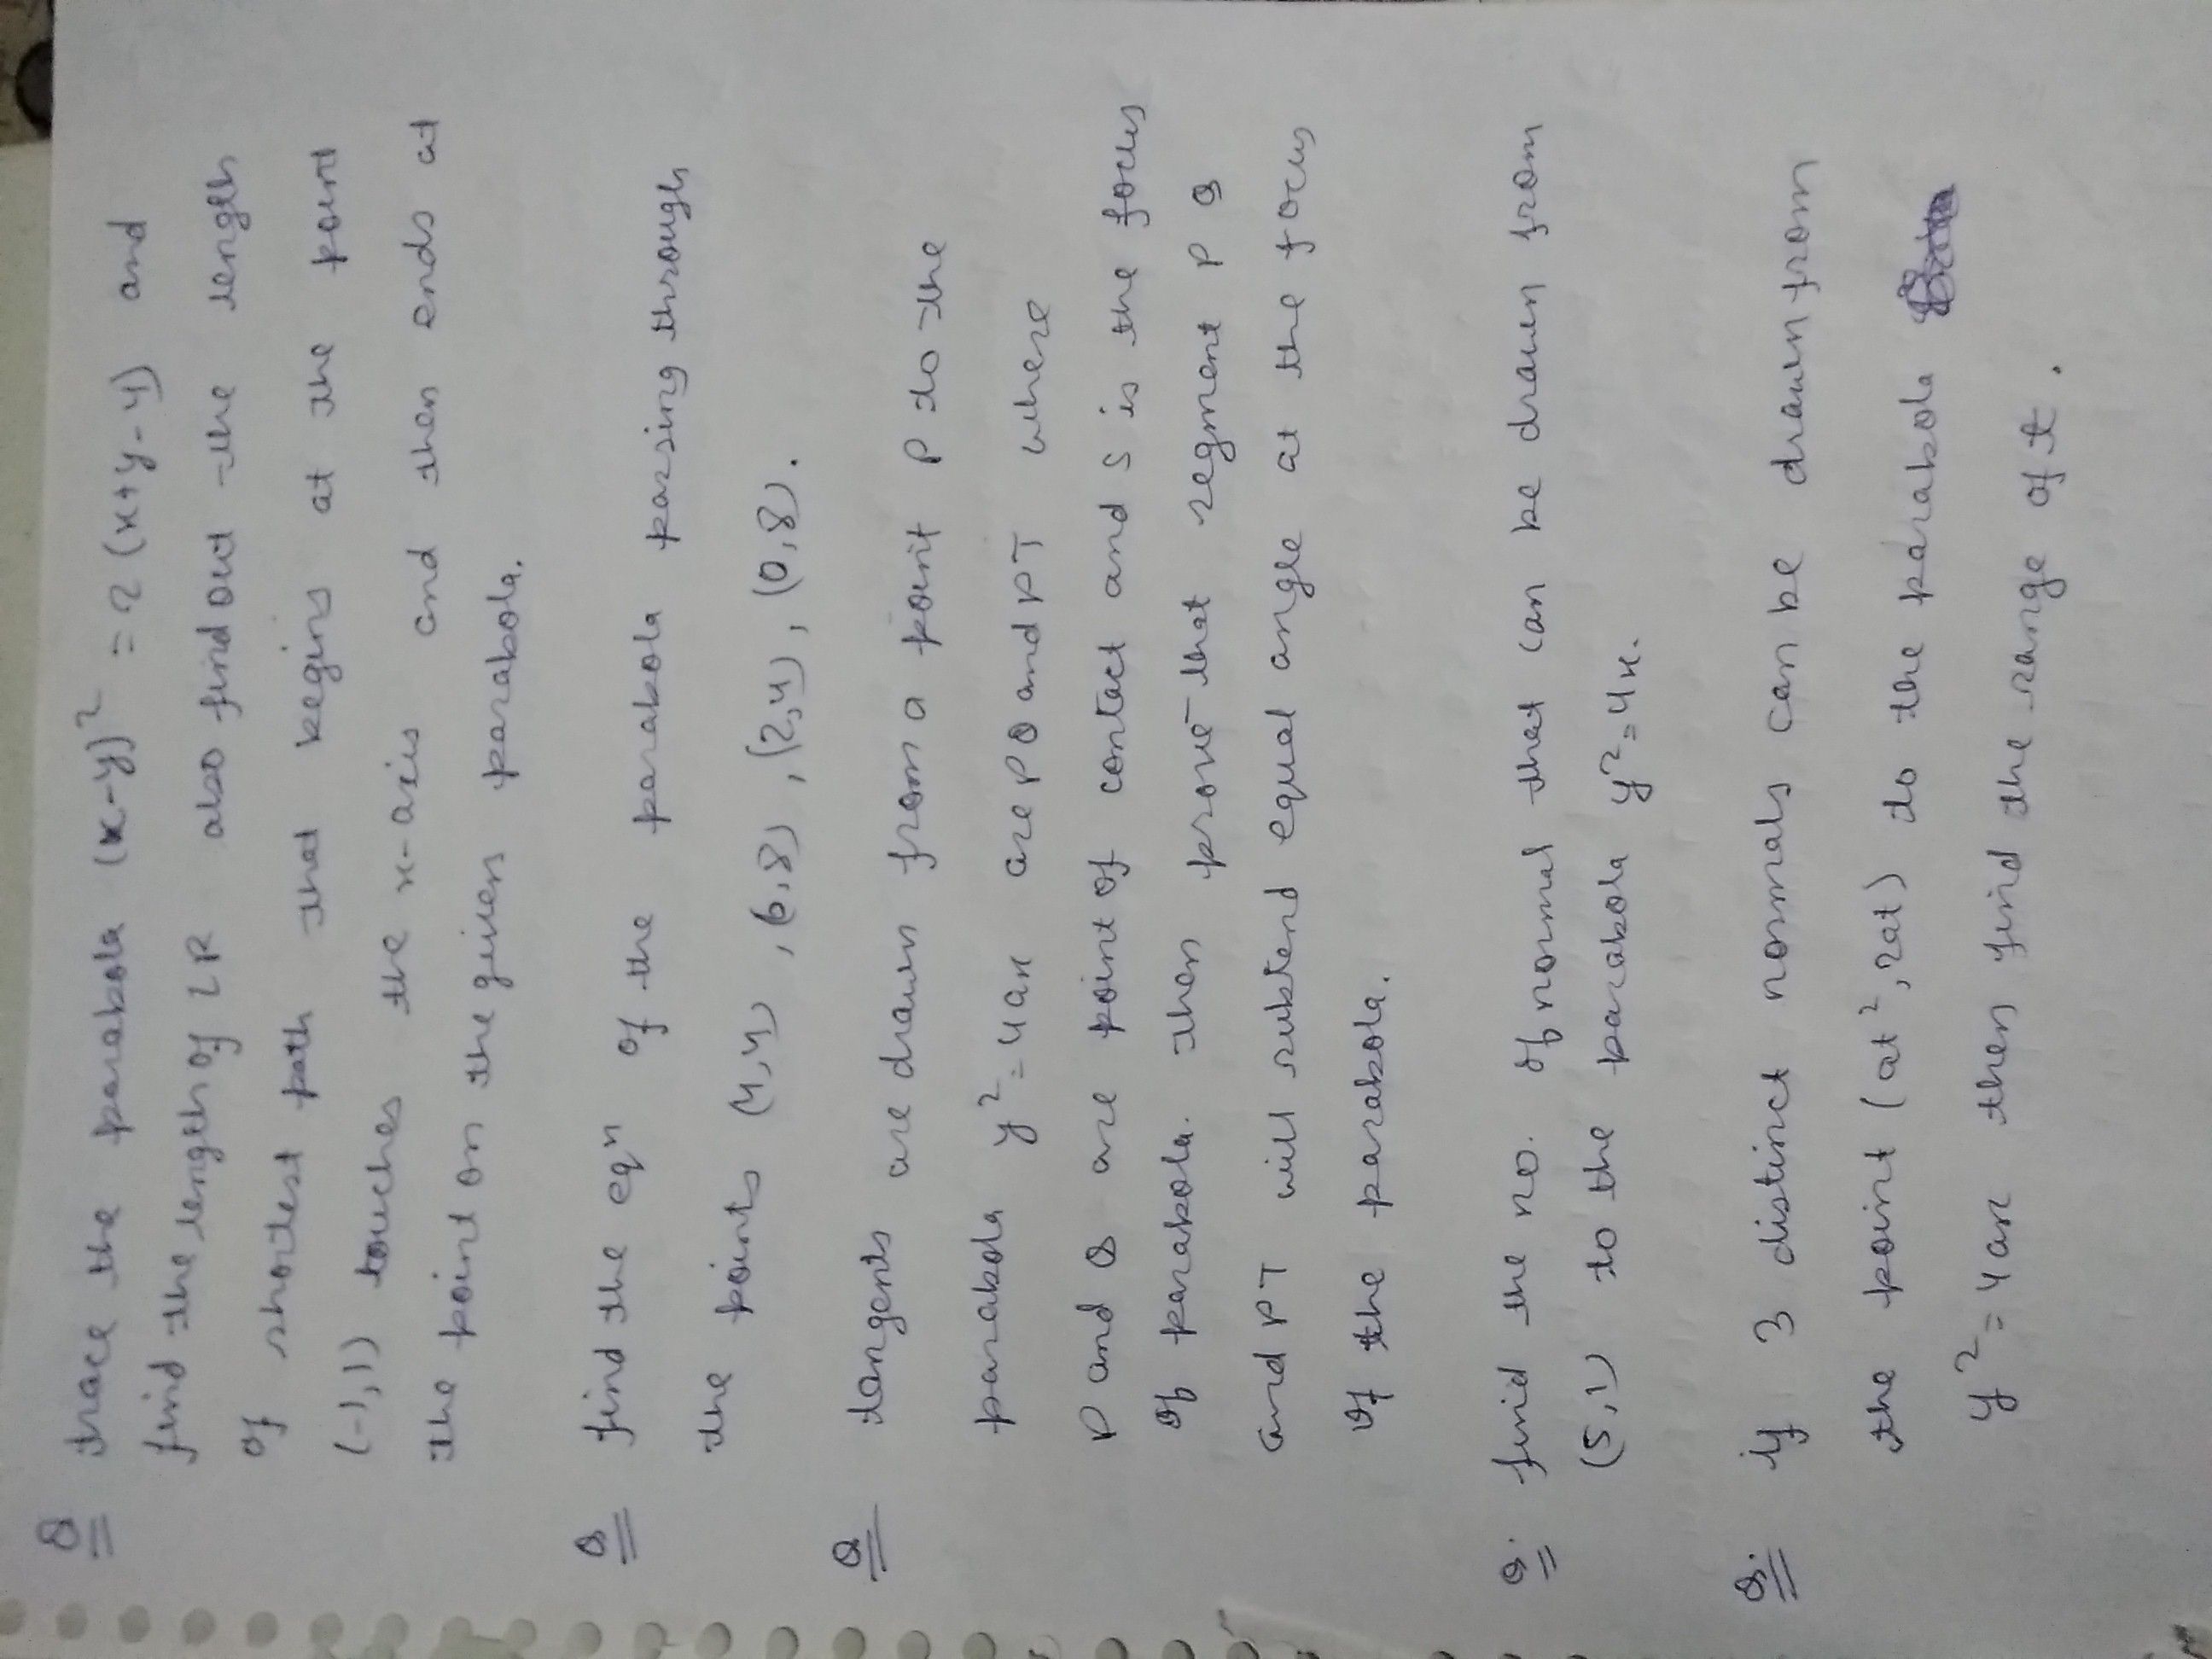 Q trace the parabola (x-y)² = 2(x+y-4) and
find the length of LR also find out the length
of shortest path that begins at the point
(-1,1) touches the x-axis and then ends at
the point on the given parabola.
Q find the eqⁿ of the parabola passing through
the points (4,4), (6,8), (2,4), (0,8).
Q tangents are drawn from a point P to the
parabola y² = 4ax are PQ and PT where
P and Q are point of contact and S is the focus
of parabola. then prove that segment PQ
and PT will subtend equal angle at the focus
of the parabola.
Q. find the no. of normal that can be drawn from
(5,1) to the parabola y² = 4x.
Q. if 3 distinct normals can be drawn from
the point (at², 2at) to the parabola
y² = 4ax then find the range of t.